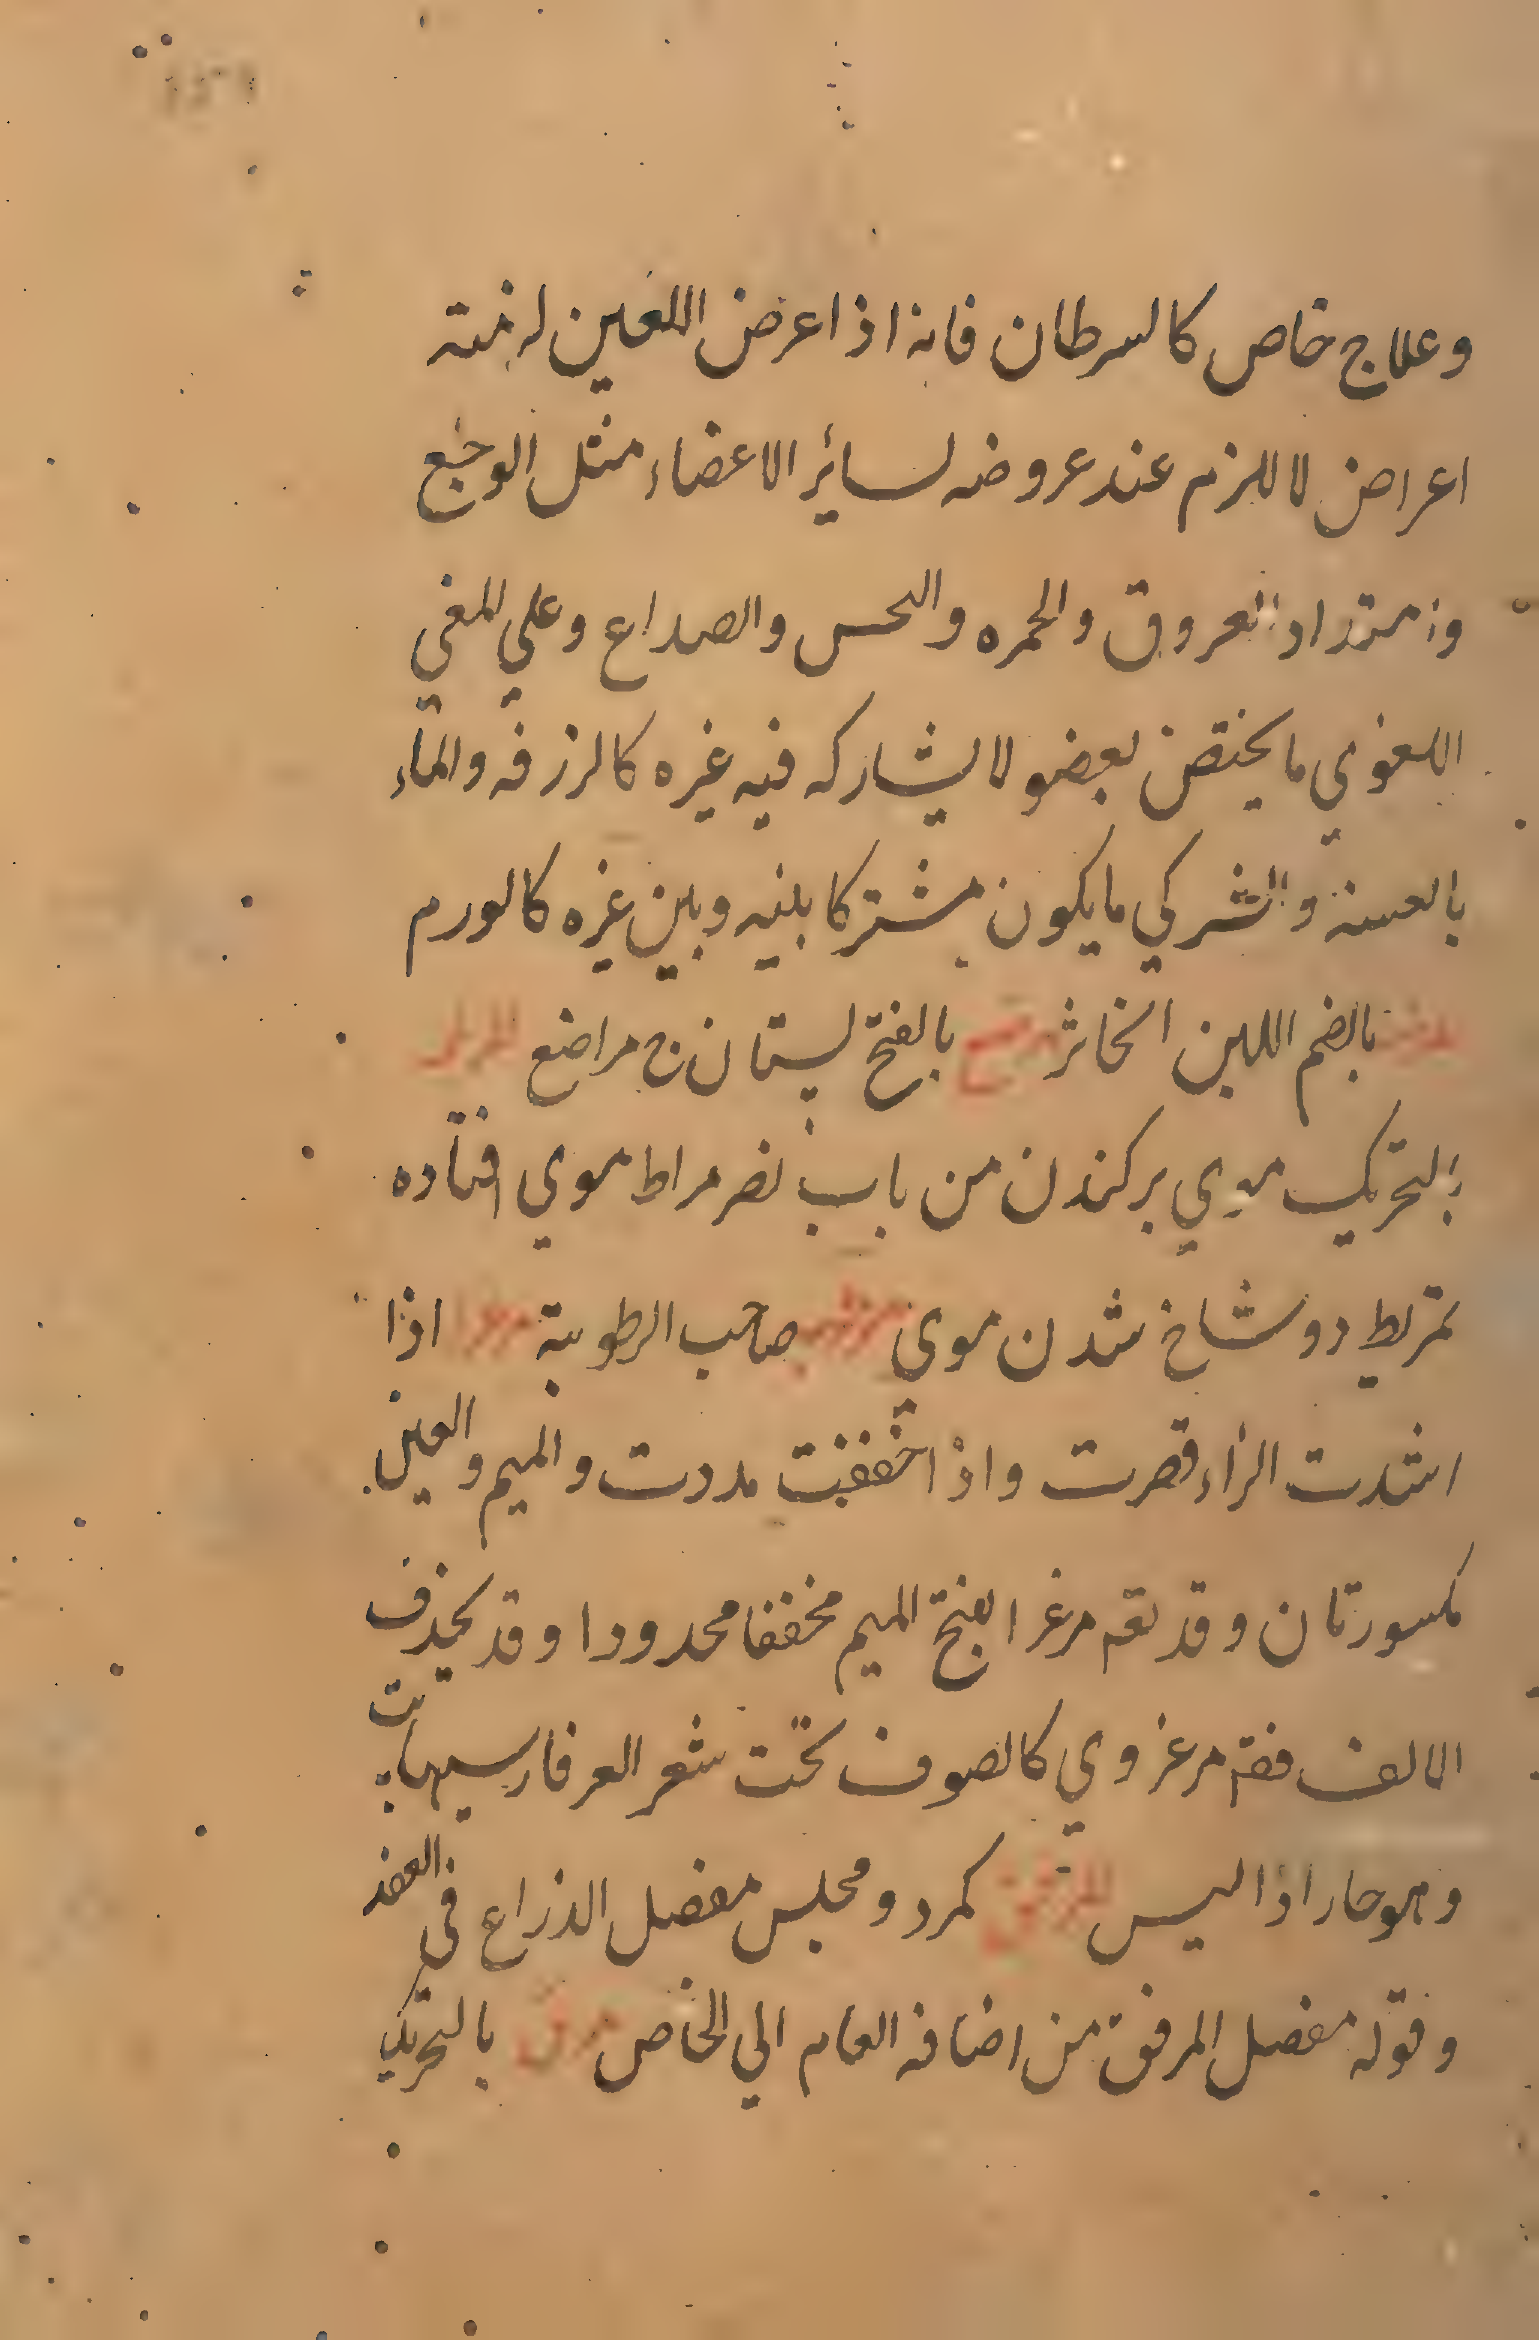 وعلاج خاص كالسرطان فانه اذا عرض اللعين لزمته
اعراض لا للزم عند عروضه لسائر الاعضاء مثل الوجع
وامتداد العروق والحمره والنحس والصداع وعلي المغي
اللغوي ما يختص بعضو لا يشاركه فيه غيره كالزرفه والماء
بالعسنه والشركي ما يكون مشتركا بينه وبين غيره كالورم
بالضم اللبن الخاثر مرضع بالفتح پستان ج مراضع المرط
بالتحريك موي بركندن من باب نصر مراط موي افتاده
تمريط دو شاخ شدن موي مرطوب صاحب الرطوبة مرعزا اذا
اشددت الزاء قصرت واذا خففت مددت والميم والعين
مكسورتان وقد يقم مرغزا بفتح الميم مخففا محدودا وقد يحذف
الالف فقم مرغزوي كالصوف تحت شعر العز فارسيها پت
وهو حار اذا اليس المرفق كمرد ومجلس مفصل الذراع في العضد
وقوله مفصل المرفق من اضافه العام الي الخاص مرق بالتحريك